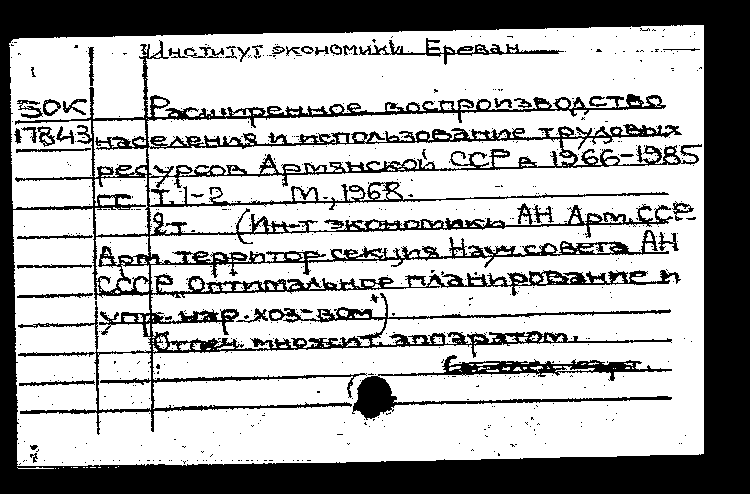 Институт экономики Ереван
ЗОК Расширенное воспроизводство
17843 населения и использование трудовых
ресурсов Армянской ССР в 1966-1985
гг Т. 1-2 М., 1968.
2т. (Ин-т экономики АН Арм. ССР.
Арм. территор. секция Науч. совета АН
СССР "Оптимальное планирование и
упр. нар. хоз-вом").
Отпеч. множит. аппаратом.
См. след. карт.